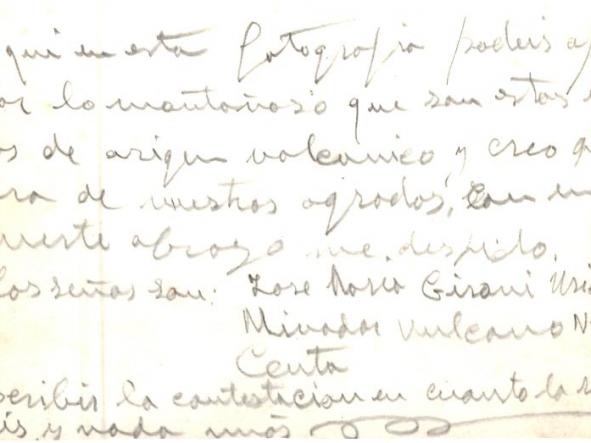 qui en esta fotografia podeis a
or lo montañoso que son estas
os de origen volcanico, y creo q
ra de vuestros agrados, Con un
uerte abrazo me despido.
las señas son: Jose Maria Girani
Minador Vulcano N
Ceuta
scribir la contestacion en cuanto la
is y nada más